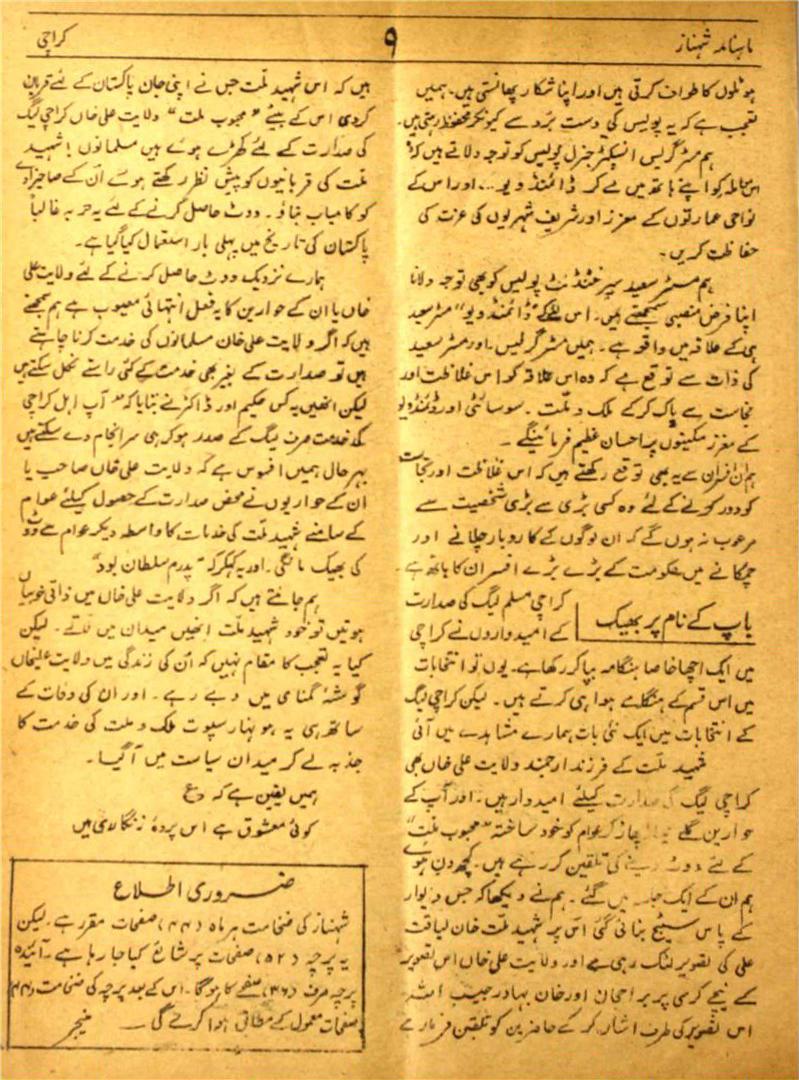 ماہنامہ شہناز
۹
کراچی
ہوٹلوں کا طواف کرتی ہیں اور اپنا شکار پھانستی ہیں۔ ہمیں
تعجب ہے کہ یہ پولیس کی دست برد سے کیونکر محفوظ رہتی ہیں۔
ہم مسٹر گریس انسپکٹر جنرل پولیس کو توجہ دلاتے ہیں کہ وہ
اس معاملہ کو اپنے ہاتھ میں لے کر ڈائمنڈ ویو... اور اس کے
نواحی عمارتوں کے معزز اور شریف شہریوں کی عزت کی
حفاظت کریں۔
ہم مسٹر سعید سپرنٹنڈنٹ پولیس کو بھی توجہ دلانا
اپنا فرض منصبی سمجھتے ہیں۔ اس لئے کہ "ڈائمنڈ ویو" مسٹر سعید
ہی کے علاقہ میں واقع ہے۔ ہمیں مسٹر گریس۔ اور مسٹر سعید
کی ذات سے توقع ہے کہ وہ اس علاقہ کو اس غلاظت اور
نجاست سے پاک کرکے ملک و ملت۔ سوسائٹی اور ڈائمنڈ ویو
کے معزز مکینوں پر احسان عظیم فرمائینگے۔
ہم ان افسران سے یہ بھی توقع رکھتے ہیں کہ اس غلاظت اور نجاست
کو دور کرنے کے لئے وہ کسی بڑی سے بڑی شخصیت سے
مرعوب نہ ہوں گے کہ ان لوگوں کے کاروبار چلانے اور
چمکانے میں حکومت کے بڑے بڑے افسران کا ہاتھ ہے۔
باپ کے نام پر بھیک
کراچی مسلم لیگ کی صدارت
کے امیدواروں نے کراچی
میں ایک اچھا خاصا ہنگامہ بپا کر رکھا ہے۔ یوں تو انتخابات
میں اس قسم کے ہنگامے ہوا ہی کرتے ہیں۔ لیکن کراچی لیگ
کے انتخابات میں ایک نئی بات ہمارے مشاہدے میں آئی
شہید ملت کے فرزند ارجمند ولایت علی خاں بھی
کراچی لیگ کی صدارت کیلئے امیدوار ہیں۔ اور آپ کے
حوارین گلے پھاڑ کر عوام کو خود ساختہ "محبوب ملت"
کے لئے ووٹ دینے کی تلقین کر رہے ہیں۔ کچھ دن ہوئے
ہم ان کے ایک جلسہ میں گئے۔ ہم نے دیکھا کہ جس دیوار
کے پاس سٹیج بنائی گئی اس پر شہید ملت خان لیاقت
علی کی تصویر لٹک رہی ہے اور ولایت علی خاں اس تصویر
کے نیچے کرسی پر براجمان اور خان بہادر حبیب اللہ
اس تصویر کی طرف اشارہ کر کے حاضرین کو تلقین فرما رہے
ہیں کہ اس شہید ملت جس نے اپنی جان پاکستان کے لئے قربان
کردی اس کے بیٹے "محبوب ملت" ولایت علی خاں کراچی لیگ
کی صدارت کے لئے کھڑے ہوئے ہیں مسلمانوں! شہید
ملت کی قربانیوں کو پیش نظر رکھتے ہوئے ان کے صاحبزادے
کو کامیاب بناؤ۔ ووٹ حاصل کرنے کے لئے یہ حربہ غالباً
پاکستان کی تاریخ میں پہلی بار استعمال کیا گیا ہے۔
ہمارے نزدیک ووٹ حاصل کرنے کے لئے ولایت علی
خاں یا ان کے حوارین کا یہ فعل انتہائی معیوب ہے ہم سمجھتے
ہیں کہ اگر ولایت علی خان مسلمانوں کی خدمت کرنا چاہتے
ہیں تو صدارت کے بغیر بھی خدمت کے کئی راستے نکل سکتے ہیں
لیکن انھیں یہ کس حکیم اور ڈاکٹر نے بتایا کہ "آپ اہل کراچی
کی خدمت صرف لیگ کے صدر ہو کر ہی سرانجام دے سکتے ہیں
بہر حال ہمیں افسوس ہے کہ ولایت علی خاں صاحب یا
ان کے حواریوں نے محض صدارت کے حصول کیلئے عوام
کے سامنے شہید ملت کی خدمات کا واسطہ دیکر عوام سے ووٹ
کی بھیک مانگی۔ اور یہ کہکر کہ "پدرم سلطان بود"
ہم جانتے ہیں کہ اگر ولایت علی خاں میں ذاتی خوبیاں
ہوتیں تو خود شہید ملت انھیں میدان میں لاتے۔ لیکن
کیا یہ تعجب کا مقام نہیں کہ ان کی زندگی میں ولایت علیخاں
گوشۂ گمنامی میں دبے رہے۔ اور ان کی وفات کے
ساتھ ہی یہ ہونہار سپوت ملک و ملت کی خدمت کا
جذبہ لے کر میدان سیاست میں آگیا۔
ہمیں یقین ہے کہ ع
کوئی معشوق ہے اس پردۂ زنگاری میں
ضروری اطلاع
شہناز کی ضخامت ہر ماہ (۴۴) صفحات مقرر ہے۔ لیکن
یہ پرچہ (۵۲) صفحات پر شائع کیا جا رہا ہے۔ آئندہ
پرچہ صرف (۳۶) صفحے کا ہوگا۔ اس کے بعد پرچہ کی ضخامت (۴۴)
صفحات معمول کے مطابق ہوا کرے گی — منیجر